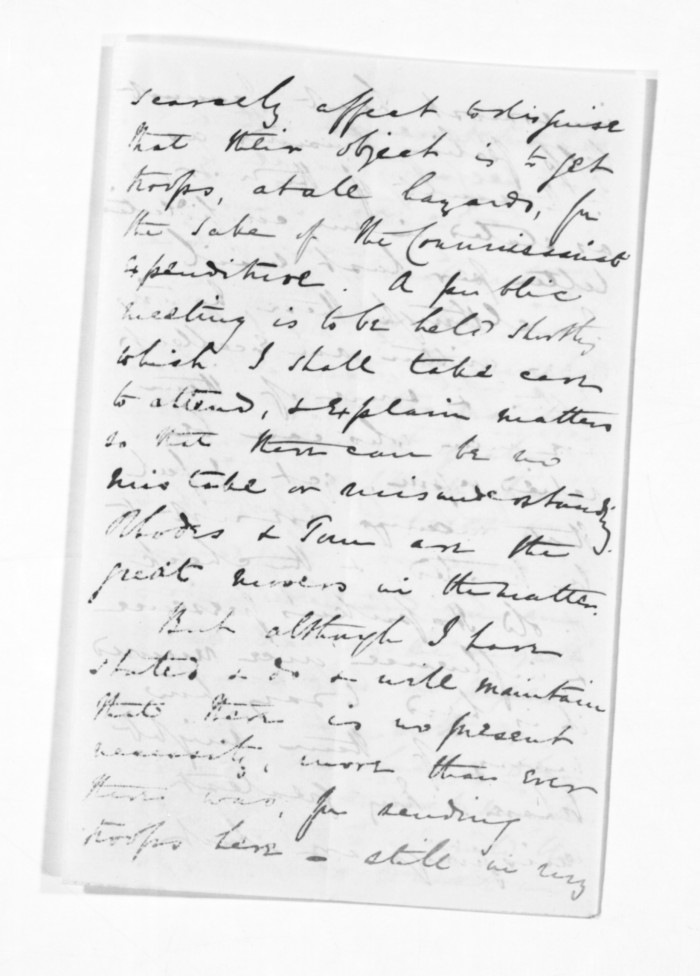 scarcely affect to disguise
that their object is to get
troops, at all hazards, for
the sake of the Commissariat
expenditure. A public
meeting is to be held shortly
which I shall take care
to attend, & explain matters
so that there can be no
mistake or misunderstanding.
Rhodes & are the
great movers in the matter.
But although I have
stated & do & will maintain
that there is no present
necessity, more than ever
there was, for sending
troops here - still in my